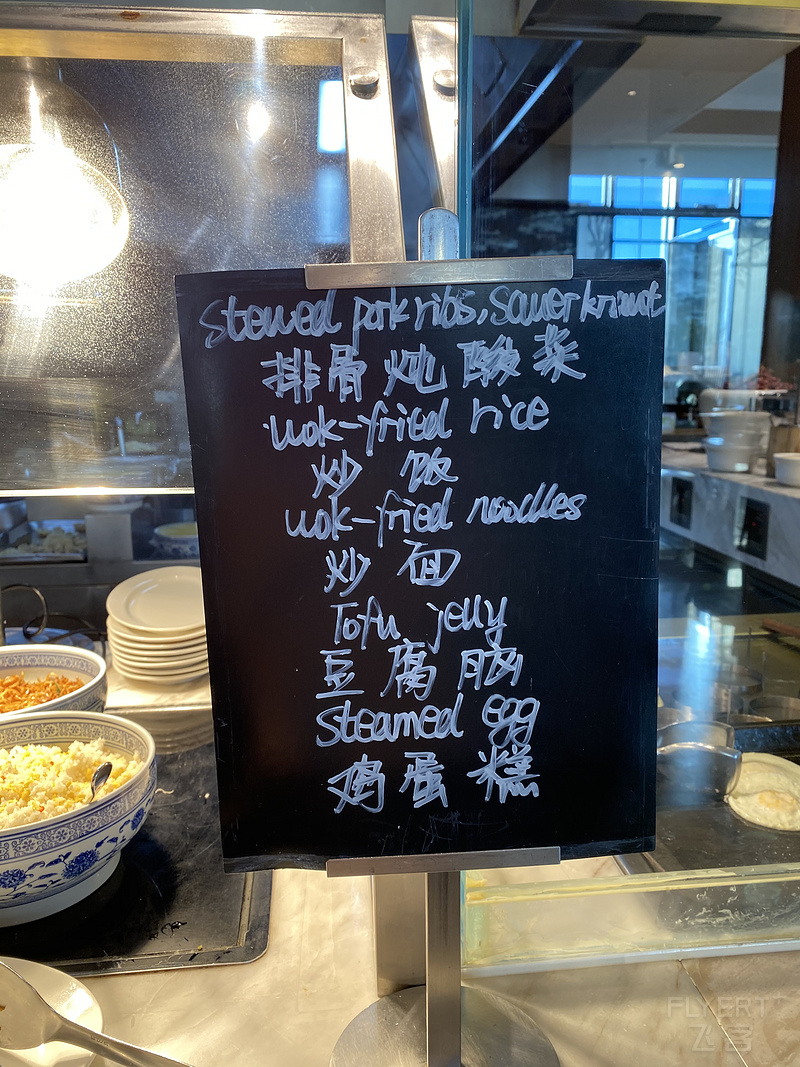 Stewed pork ribs, Sauerkraut
排骨炖酸菜
wok-fried rice
炒饭
wok-fried noodles
炒面
Tofu jelly
豆腐脑
Steamed egg
鸡蛋糕
FLYERT
飞客